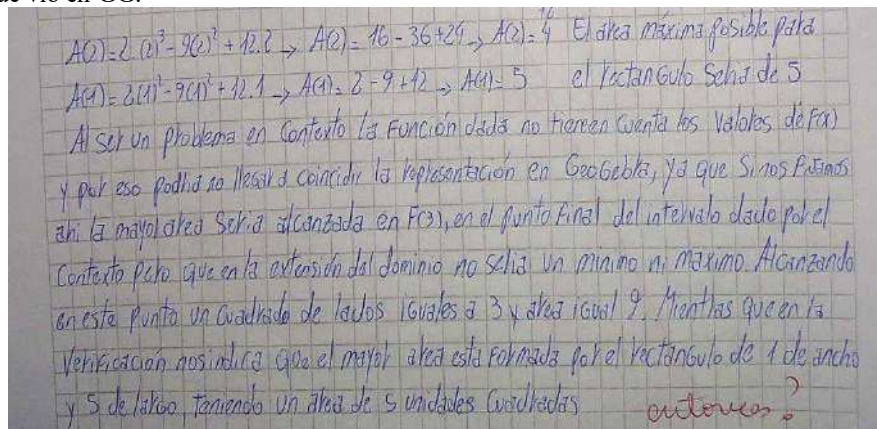 A(2)=2.(2)³-9(2)²+12.2→ A(2)=16-36+24→ A(2)=4 El area máxima posible para
A(1)=2(1)³-9(1)²+12.1→ A(1)=2-9+12→ A(1)=5 el rectangulo Seria de 5
Al ser un problema en contexto la Función dada no tienen cuenta los valores de F(x)
y por eso podria no llegar a coincidir la representación en GeoGebra, ya que Si nos Fijamos
ahi la mayor area Seria alcanzada en F(3), en el punto final del intervalo dado por el
Contexto pero que en la extensión del dominio no seria un minimo ni maximo. Alcanzando
en este punto un Cuadrado de lados iguales a 3 y area igual 9. Mientras que en la
Verificación nos indica que el mayor area esta Formada por el rectangulo de 1 de ancho
y 5 de largo, teniendo un area de 5 unidades Cuadradas entonces?